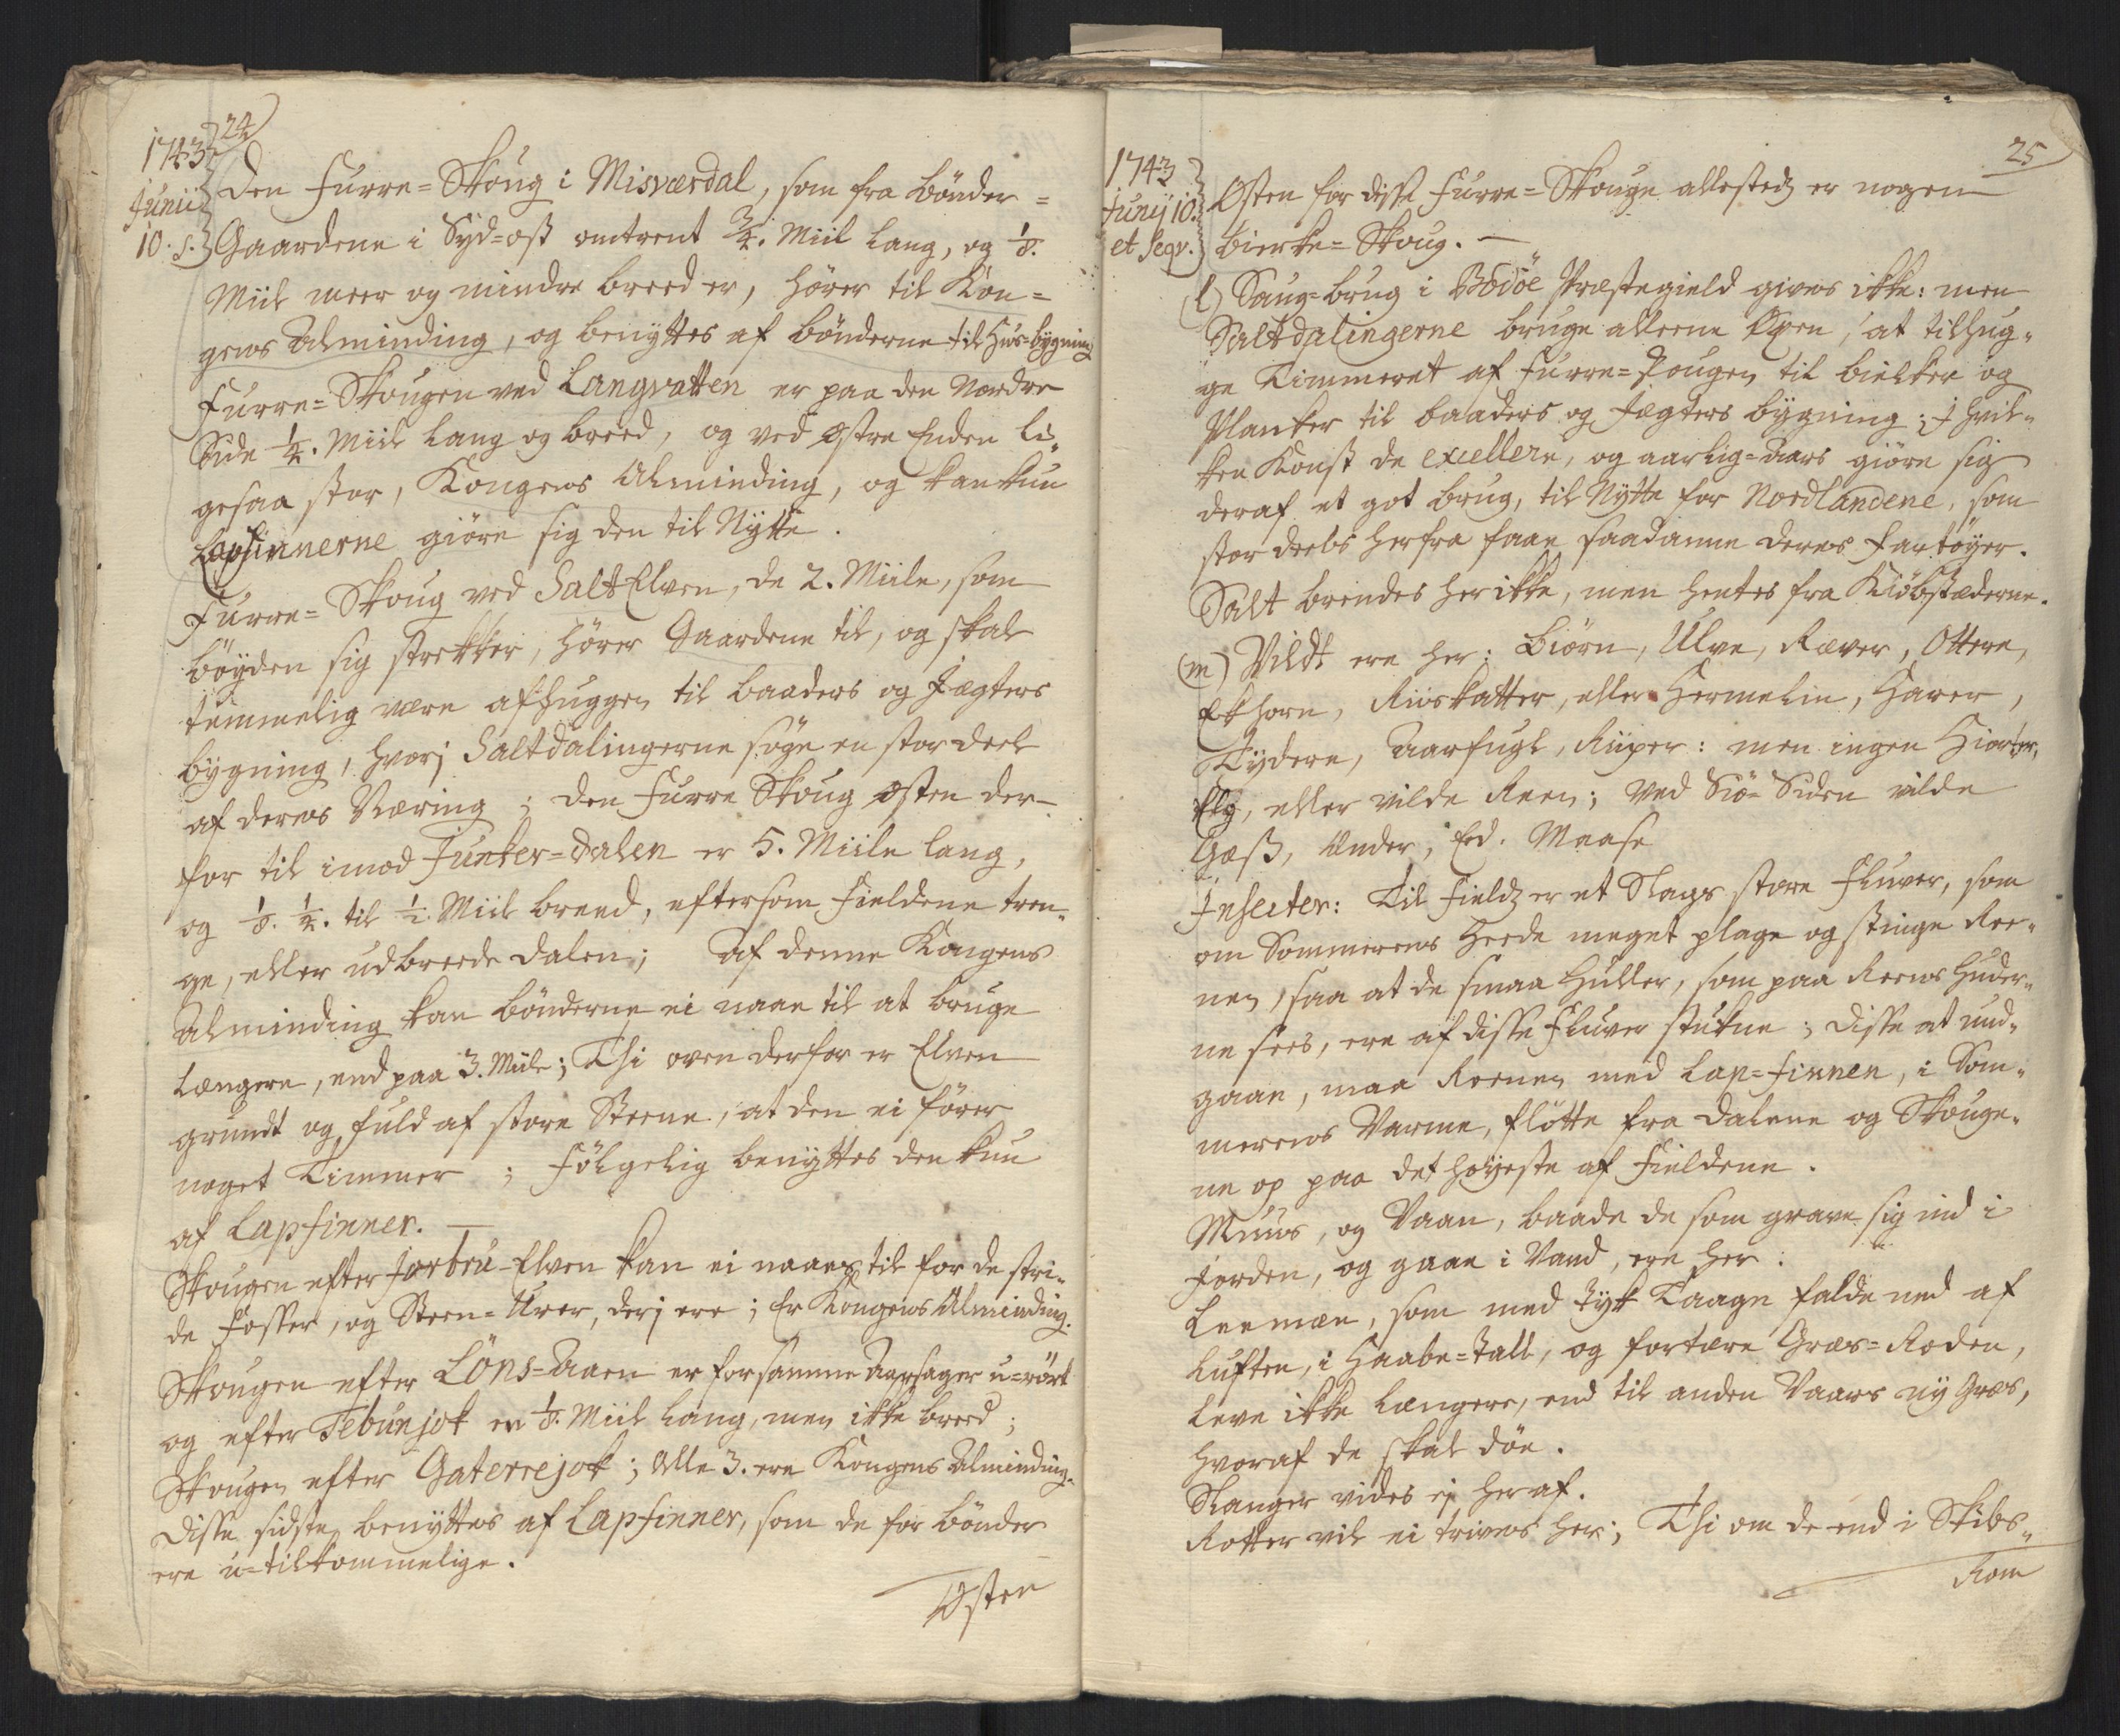 24
1743
Junii
10. s.
Den Furre=Skoug i Misværdal, som fra Bönder=
Gaardene i Syd=ost omtrent 3/4. Miil lang, og 1/8.
Miil meer og mindre breed er, hører til Kon=
gens Alminding, og benyttes af bönderne til Hus=bygning
Furre=Skougen ved Langvatten er paa den Nordre
Side 1/4. Miil lang og breed, og ved østre Enden li„
gesaa stor, Kongens Alminding, og kan kun
Lapfinnerne giöre sig den til Nytte.
Furre=Skoug ved Salt Elven, de 2. Miile, som
böyden sig strekker, hører Gaardene til, og skal
temmelig være afhuggen til baaders og Jægters
bygning, hvorj Saltdalingerne söge en stor deel
af deres Næring; den Furre Skoug østen der-
for til imod Junker=dalen er 5. Miile lang,
og 1/8. 1/4. til 1/2 Miil breed, eftersom Fieldene tren„
ge, eller udbreede dalen; Af denne Kongens
Alminding kan bönderne ei naae til at bruge
længere, end paa 3. Miile; Thi oven derfor er Elven
grundt og fuld af store Steene, at den ei fører
noget Timmer; Fölgelig benyttes den kun
af Lapfinner. —
Skougen efter Jarbru-Elven kan ei naaes til for de stri„
de Fosser, og Steen=Urer, derj ere; Er Kongens Alminding.
Skougen efter Löns=Aaen er for samme Aarsager u=rört
og efter Tebunjok er 1/8. Miil lang, men ikke breed;
Skougen efter Gaterrejok; Alle 3. ere Kongens Alminding.
Disse sidste benyttes af Lapfinner, som de for bönder
ere u=tilkommelige.
Østen
25
1743
Junij 10.
et seqv.
Østen for disse Furre=Skouge allestedz er nogen
Bierke=Skoug. —
(l) Saug=brug i Bodöe Præstegield gives ikke: men
Saltdalingerne bruge alleene Øxen, at tilhug„
ge Timmeret af Furre=Skougen til bielker og
Planker til baaders og Jægters bygning; J hvil„
ken Konst de excellere, og aarlig=Aars giöre sig
deraf et got brug, til Nytte for Nordlandene, som
stor deels herfra faae saadanne deres Fartöyer.
Salt brendes her ikke, men hentes fra Kiöbstæderne.
(m) Vildt ere her: Biörn, Ulve, Ræver, Ottere,
Ekhorn, Röiskatter, eller Hermelin, Harer,
Tydere, Aarfugl, Riiper: men ingen Hiorter,
Elg, eller vilde Reen; Ved Siö=Siden vilde
Gæss, Ænder, Ed. Maase
Jnsecter: Til Fieldz er et Slags store Fluer, som
om Sommerens Heede meget plage og stinge Ree„
nen, saa at de smaa Huller, som paa Reens huder„
ne sees, ere af disse Fluer stukne; Disse at und„
gaae, maa Reenen med Lap=Finnen, i Som„
merens Varme, flötte fra dalene og Skouge„
ne op paa det høyeste af Fieldene.
Muus, og Vaan, baade de som grave sig ind i
Jorden, og gaae i Vand, ere her:
Leemæn, som med tyk Taage falde ned af
Luften, i Haabe=tall, og fortære Græs=Roden,
leve ikke længere, end til anden Vaars ny Græs,
hvoraf de skal döe.
Slanger vides ej her af.
Rotter vil ei trives her; Thi om de end i Skibs„
Rom